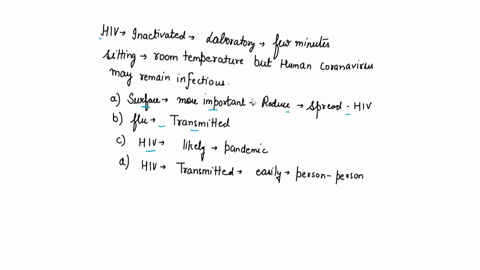 HIV → Inactivated → Laboratory → few minutes
Sitting → room temperature but Human Coranavirus
may remain infectious.
a) Surface → more important → Reduce → Spread. HIV
b) flu → Transmitted
c) HIV → likely → pandemic
d) HIV → Transmitted → easily → person-person